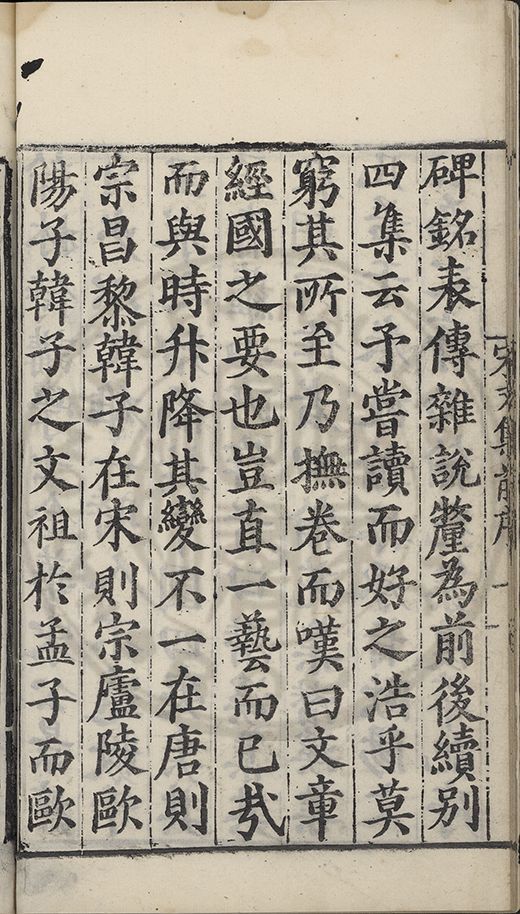 碑銘表傳雜說釐為前後續別
四集云予嘗讀而好之浩乎莫
窮其所至乃撫卷而嘆曰文章
經國之要也豈直一藝而已㢤
而與時升降其變不一在唐則
宗昌黎韓子在宋則宗廬陵歐
陽子韓子之文祖於孟子而歐